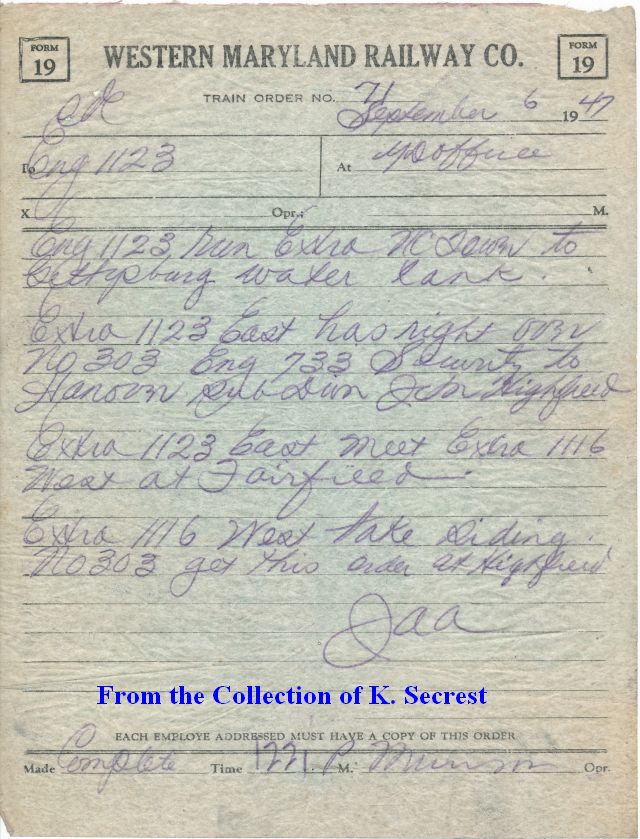 FORM 19 WESTERN MARYLAND RAILWAY CO. FORM 19
TRAIN ORDER NO. 71
September 6 1947
To Eng 1123 At office
X Opr.; M.
Eng 1123 run Extra to
Gettysburg water tank.
Extra 1123 East has right over
No 303 Eng 733 Security to
Hanover Sub Jct Highfield
Extra 1123 East meet Extra 1116
West at Fairfield.
Extra 1116 West take siding.
No 303 get this order at Highfield
JAA
From the Collection of K. Secrest
EACH EMPLOYE ADDRESSED MUST HAVE A COPY OF THIS ORDER
Made Complete Time 1221 P M. Opr.